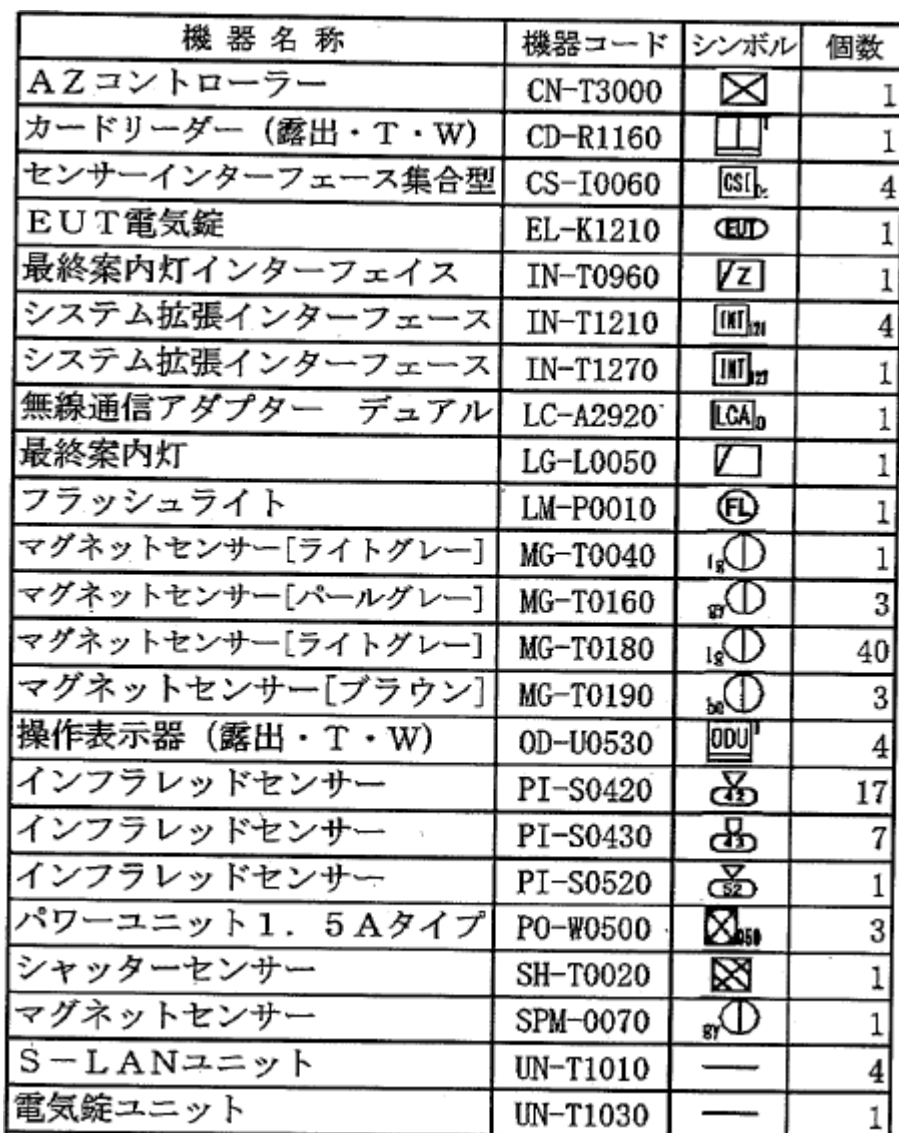 機器名称 機器コード シンボル 個数
AZコントローラー CN-T3000 1
カードリーダー(露出・T・W) CD-R1160 1
センサーインターフェース集合型 CS-I0060 CSI 4
EUT電気錠 EL-K1210 EUT 1
最終案内灯インターフェイス IN-T0960 Z 1
システム拡張インターフェース IN-T1210 INT 121 4
システム拡張インターフェース IN-T1270 INT 127 1
無線通信アダプター デュアル LC-A2920 LCA D 1
最終案内灯 LG-L0050 1
フラッシュライト LM-P0010 FL 1
マグネットセンサー[ライトグレー] MG-T0040 lg 1
マグネットセンサー[パールグレー] MG-T0160 gy 3
マグネットセンサー[ライトグレー] MG-T0180 lg 40
マグネットセンサー[ブラウン] MG-T0190 3
操作表示器(露出・T・W) OD-U0530 ODU 4
インフラレッドセンサー PI-S0420 42 17
インフラレッドセンサー PI-S0430 43 7
インフラレッドセンサー PI-S0520 52 1
パワーユニット1.5Aタイプ PO-W0500 050 3
シャッターセンサー SH-T0020 1
マグネットセンサー SPM-0070 gy 1
S-LANユニット UN-T1010 — 4
電気錠ユニット UN-T1030 — 1